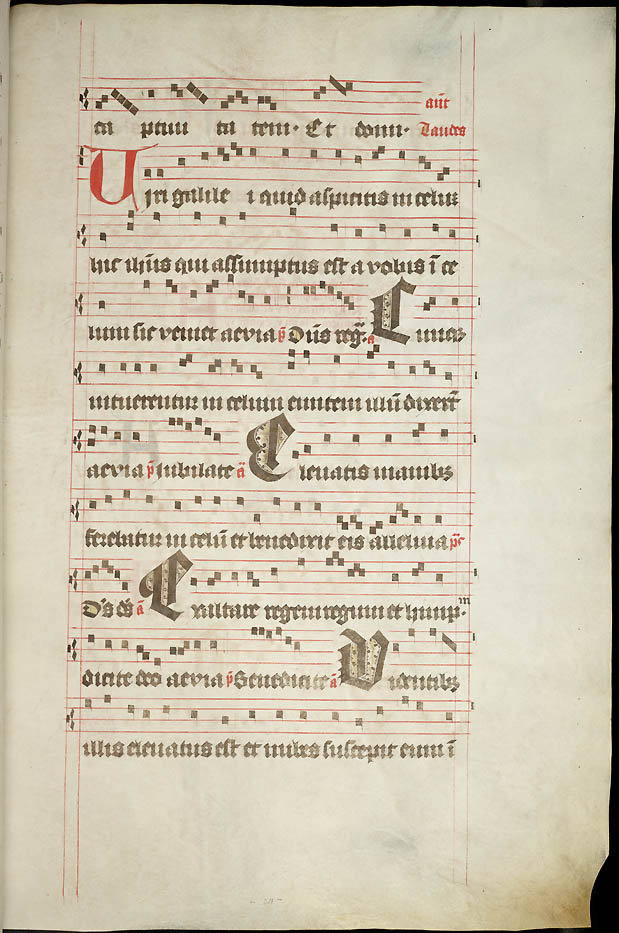 ta ptiui ta tem· Et domi· añt Laudes
Uiri galile i quid aspicitis in celuz
hic ihūs qui assumptus est a vobis ī ce
lum sic veniet aevia p̄ Dn̄s reg. a Cumqz
intuerentur in celum euntem illū dixerūt
aevia p̄ Jubilate a Eleuatis manibz
ferebatur in celū et benedixit eis alleluia ps
Ds ds a Exaltate regem regum et hymp·m
dicite deo aevia p̄ Benedicite a Uidentibz
illis eleuatus est et nubes suscepit eum ī